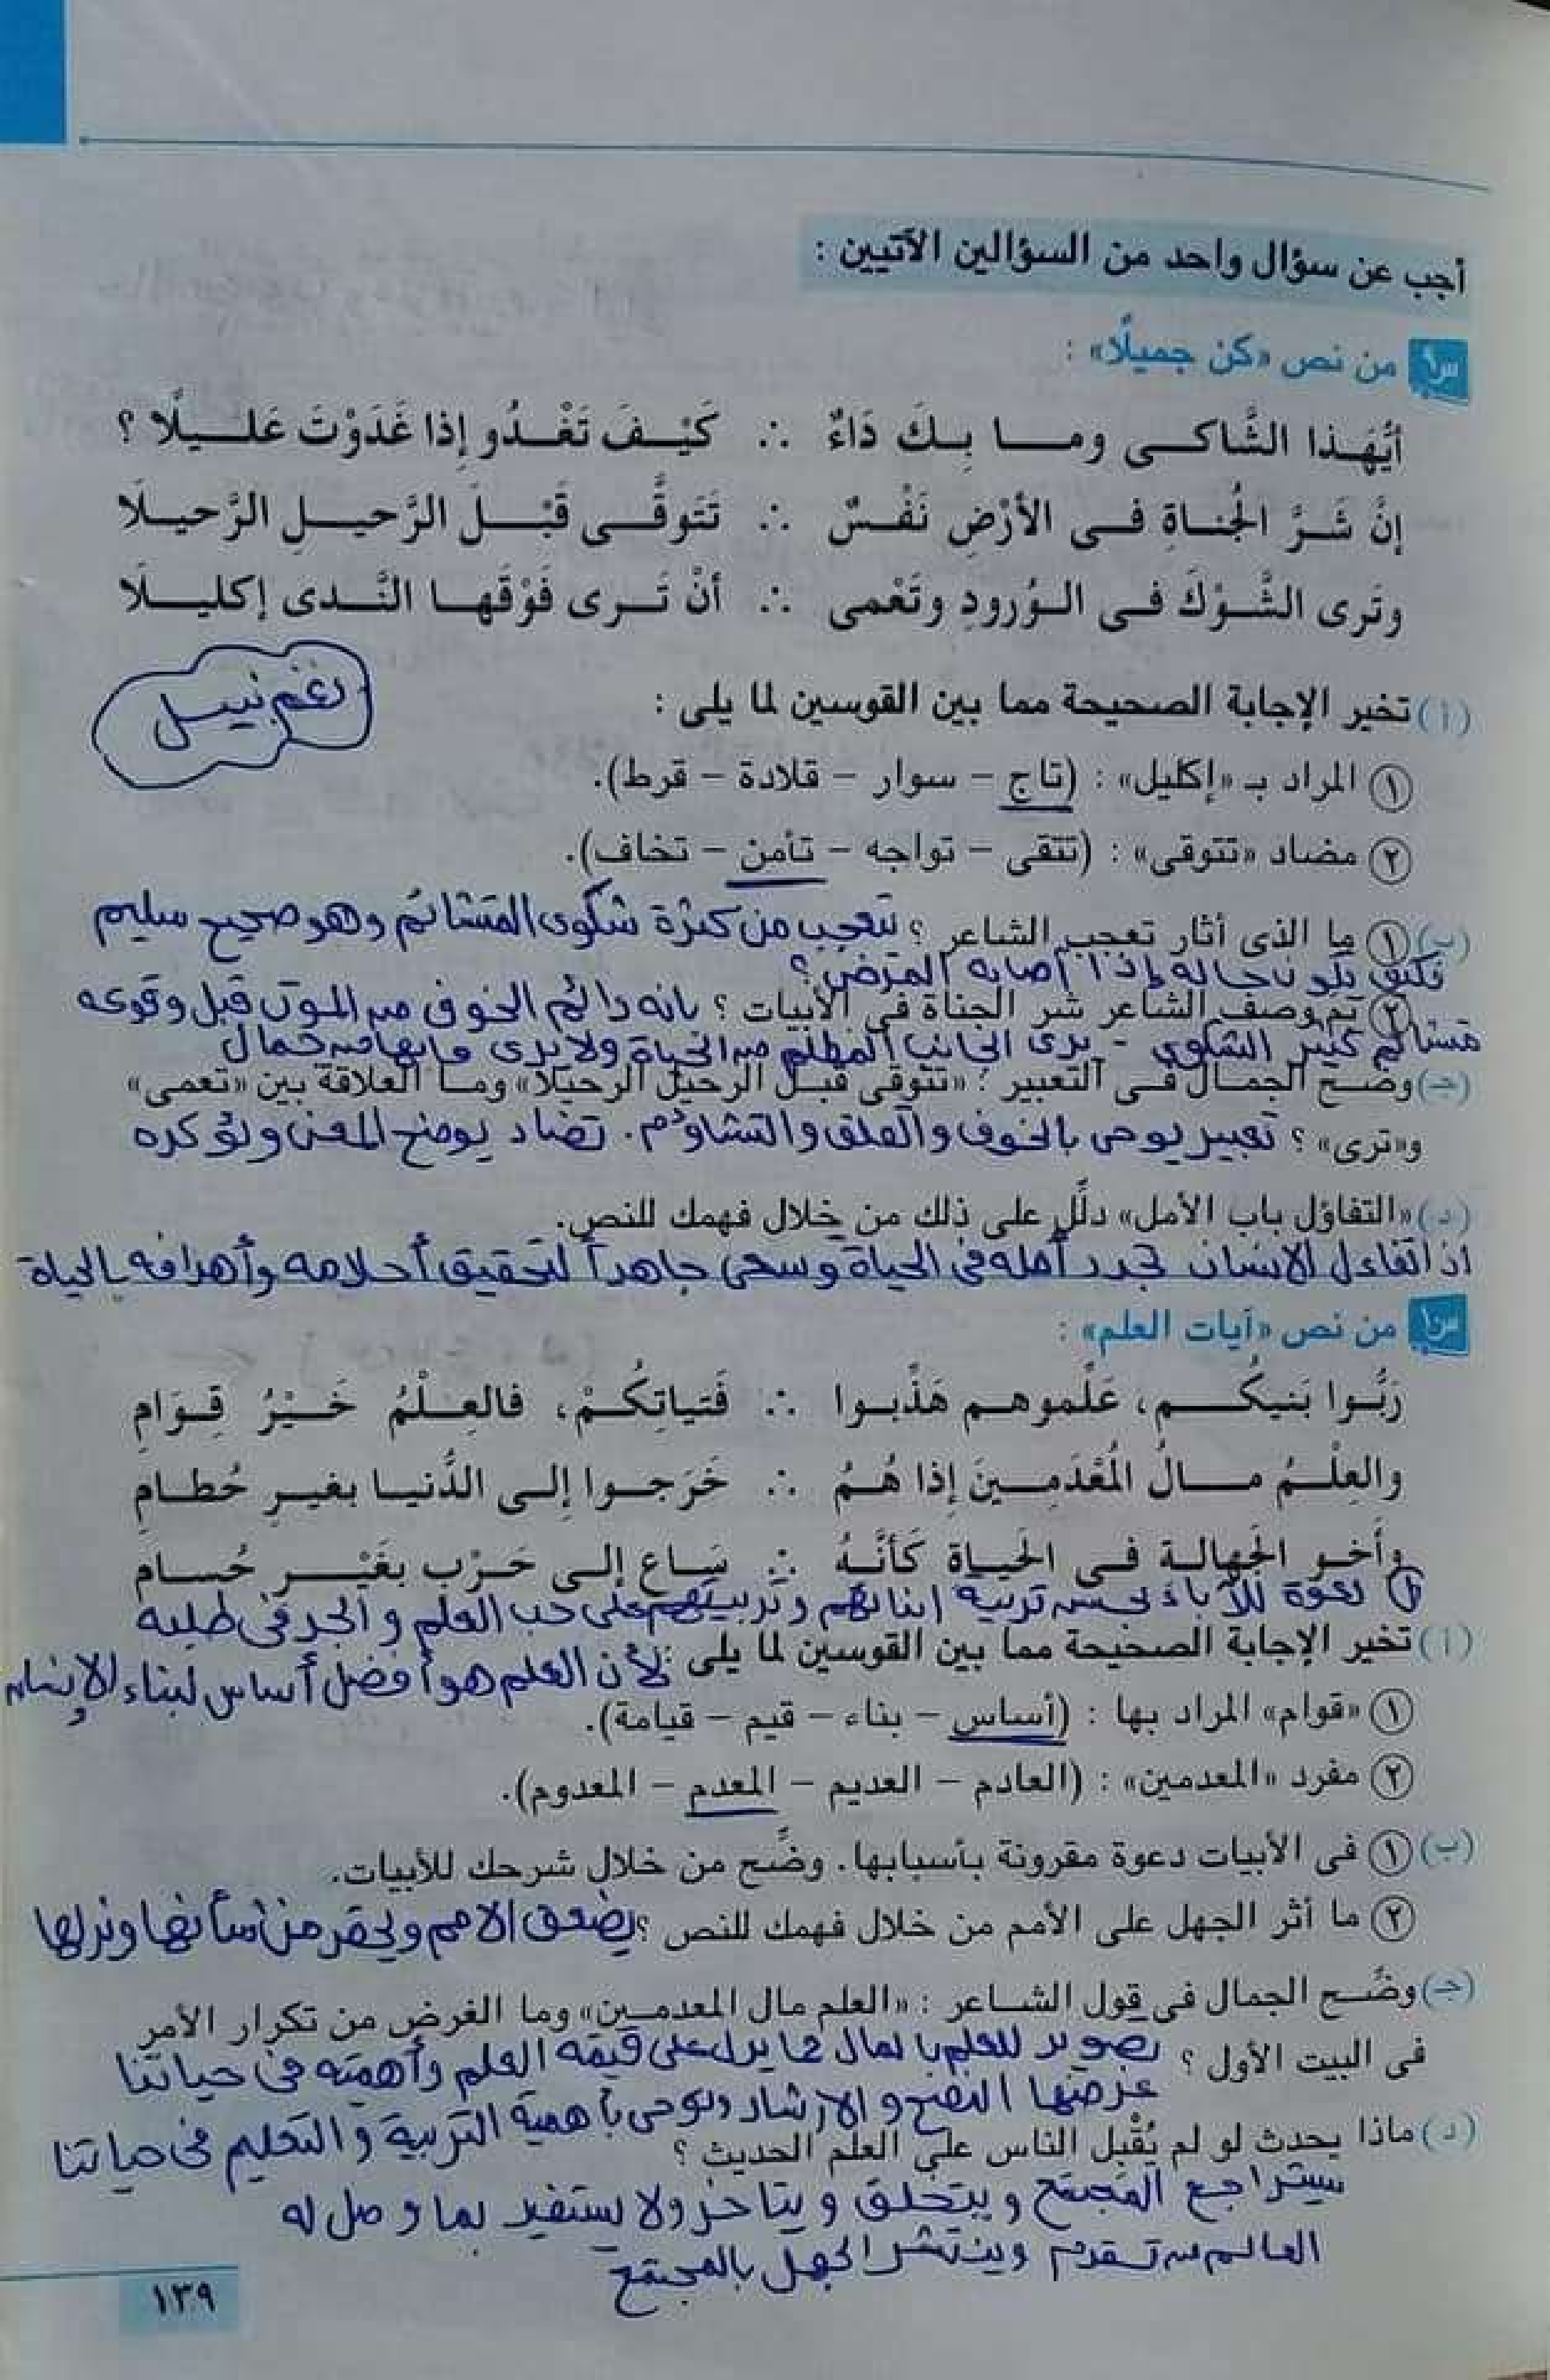 أجب عن سؤال واحد من السؤالين الآتيين :
س١ من نص «كن جميلًا» :
أيُّهَذا الشَّاكى وما بِكَ دَاءٌ ∴ كَيْفَ تَغْدُو إذا غَدَوْتَ عَليلًا ؟
إنَّ شَرَّ الجُناةِ فى الأرْضِ نَفْسٌ ∴ تَتَوقَّى قَبْلَ الرَّحيلِ الرَّحيلَا
وتَرى الشَّوْكَ فى الوُرودِ وتَعْمى ∴ أنْ تَرى فَوْقَها النَّدى إكليلَا
نغم نبيل
(أ) تخير الإجابة الصحيحة مما بين القوسين لما يلى :
١ المراد بـ «إكليل» : (تاج – سوار – قلادة – قرط).
٢ مضاد «تتوقى» : (تتقى – تواجه – تأمن – تخاف).
(ب) ١ ما الذى أثار تعجب الشاعر ؟ يتعجب من كثرة شكوى المتشائم وهو صحيح سليم
فكيف يكون حاله إذا أصابه المرض؟
٢ بم وصف الشاعر شر الجناة فى الأبيات ؟ بانه دائم الخوف من الموت قبل وقوعه
متشائم كثير الشكوى - يرى الجانب المظلم من الحياة ولا يرى ما بها من جمال
(جـ) وضح الجمال فى التعبير : «تتوقى قبل الرحيل الرحيلا» وما العلاقة بين «تعمى»
و«ترى» ؟ تعبير يوحى بالخوف والقلق والتشاؤم. تضاد يوضح المعنى ويؤكده
(د) «التفاؤل باب الأمل» دلِّل على ذلك من خلال فهمك للنص.
اذا تفاءل الانسان تجدد أمله فى الحياة وسعى جاهداً لتحقيق أحلامه وأهدافه بالحياة
س١ من نص «آيات العلم» :
رَبُّوا بَنيكُم، عَلِّموهم هَذِّبوا ∴ فَتياتِكُمْ، فالعِلْمُ خَيْرُ قِوَامِ
والعِلْمُ مالُ المُعْدَمِينَ إذا هُمُ ∴ خَرَجوا إلى الدُّنيا بغيرِ حُطامِ
وأخو الجَهالة فى الحَياة كَأنَّهُ ∴ سَاعٍ إلى حَرْب بغَيْر حُسامِ
١ دعوة للآباء لحسن تربية ابنائهم وتربيتهم على حب العلم والجد فى طلبه
(أ) تخير الإجابة الصحيحة مما بين القوسين لما يلى :
لأن العلم هو أفضل أساس لبناء الإنسان
١ «قوام» المراد بها : (أساس – بناء – قيم – قيامة).
٢ مفرد «المعدمين» : (العادم – العديم – المعدم – المعدوم).
(ب) ١ فى الأبيات دعوة مقرونة بأسبابها. وضَّح من خلال شرحك للأبيات.
٢ ما أثر الجهل على الأمم من خلال فهمك للنص ؟ يضعف الامم ويحقر من شأنها ويذلها
(جـ) وضَّح الجمال فى قول الشاعر : «العلم مال المعدمين» وما الغرض من تكرار الأمر
فى البيت الأول ؟ تصوير للعلم بالمال مما يدل على قيمة العلم وأهميته فى حياتنا
غرضها النصح والارشاد ويوحى بأهمية التربية والتعليم فى حياتنا
(د) ماذا يحدث لو لم يُقْبل الناس على العلم الحديث ؟
سيتراجع المجتمع ويتخلف ويتأخر ولا يستفيد بما وصل له
العالم من تقدم وينتشر الجهل بالمجتمع
١٣٩